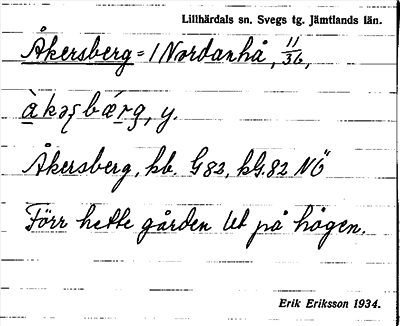 Lillhärdals sn. Svegs tg. Jämtlands län.
Åkersberg = 1 Nordanhå, 11/36,
Åkersberg, kb. G82, kG.82 NÖ
Förr hette gården Ut på hågen.
Erik Eriksson 1934.